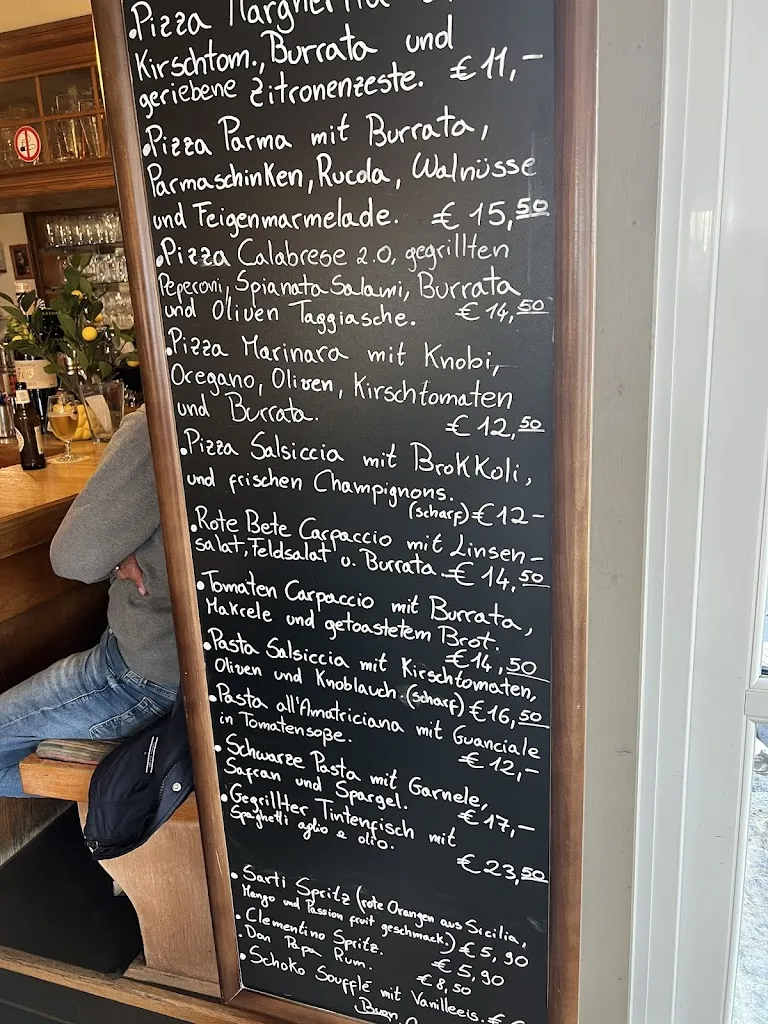 • Pizza Margherita
Kirschtom., Burrata und
geriebene Zitronenzeste. € 11,-
• Pizza Parma mit Burrata,
Parmaschinken, Rucola, Walnüsse
und Feigenmarmelade. € 15,50
• Pizza Calabrese 2.0, gegrillten
Peperoni, Spianata Salami, Burrata
und Oliven Taggiasche. € 14,50
• Pizza Marinara mit Knobi,
Oregano, Oliven, Kirschtomaten
und Burrata. € 12,50
• Pizza Salsiccia mit Brokkoli,
und frischen Champignons.
(scharf) € 12-
• Rote Bete Carpaccio mit Linsen-
salat, Feldsalat u. Burrata. € 14,50
• Tomaten Carpaccio mit Burrata,
Makrele und getoastetem Brot.
€ 14,50
• Pasta Salsiccia mit Kirschtomaten,
Oliven und Knoblauch. (scharf) € 16,50
• Pasta all'Amatriciana mit Guanciale
in Tomatensoße. € 12,-
• Schwarze Pasta mit Garnele,
Safran und Spargel. € 17,-
• Gegrillter Tintenfisch mit
Spaghetti aglio e olio. € 23,50
• Sarti Spritz (rote Orangen aus Sicilia,
Mango und Passion fruit geschmack.) € 5,90
• Clementino Spritz. € 5,90
• Don Papa Rum. € 8,50
• Schoko Soufflé mit Vanilleeis. €
Buon